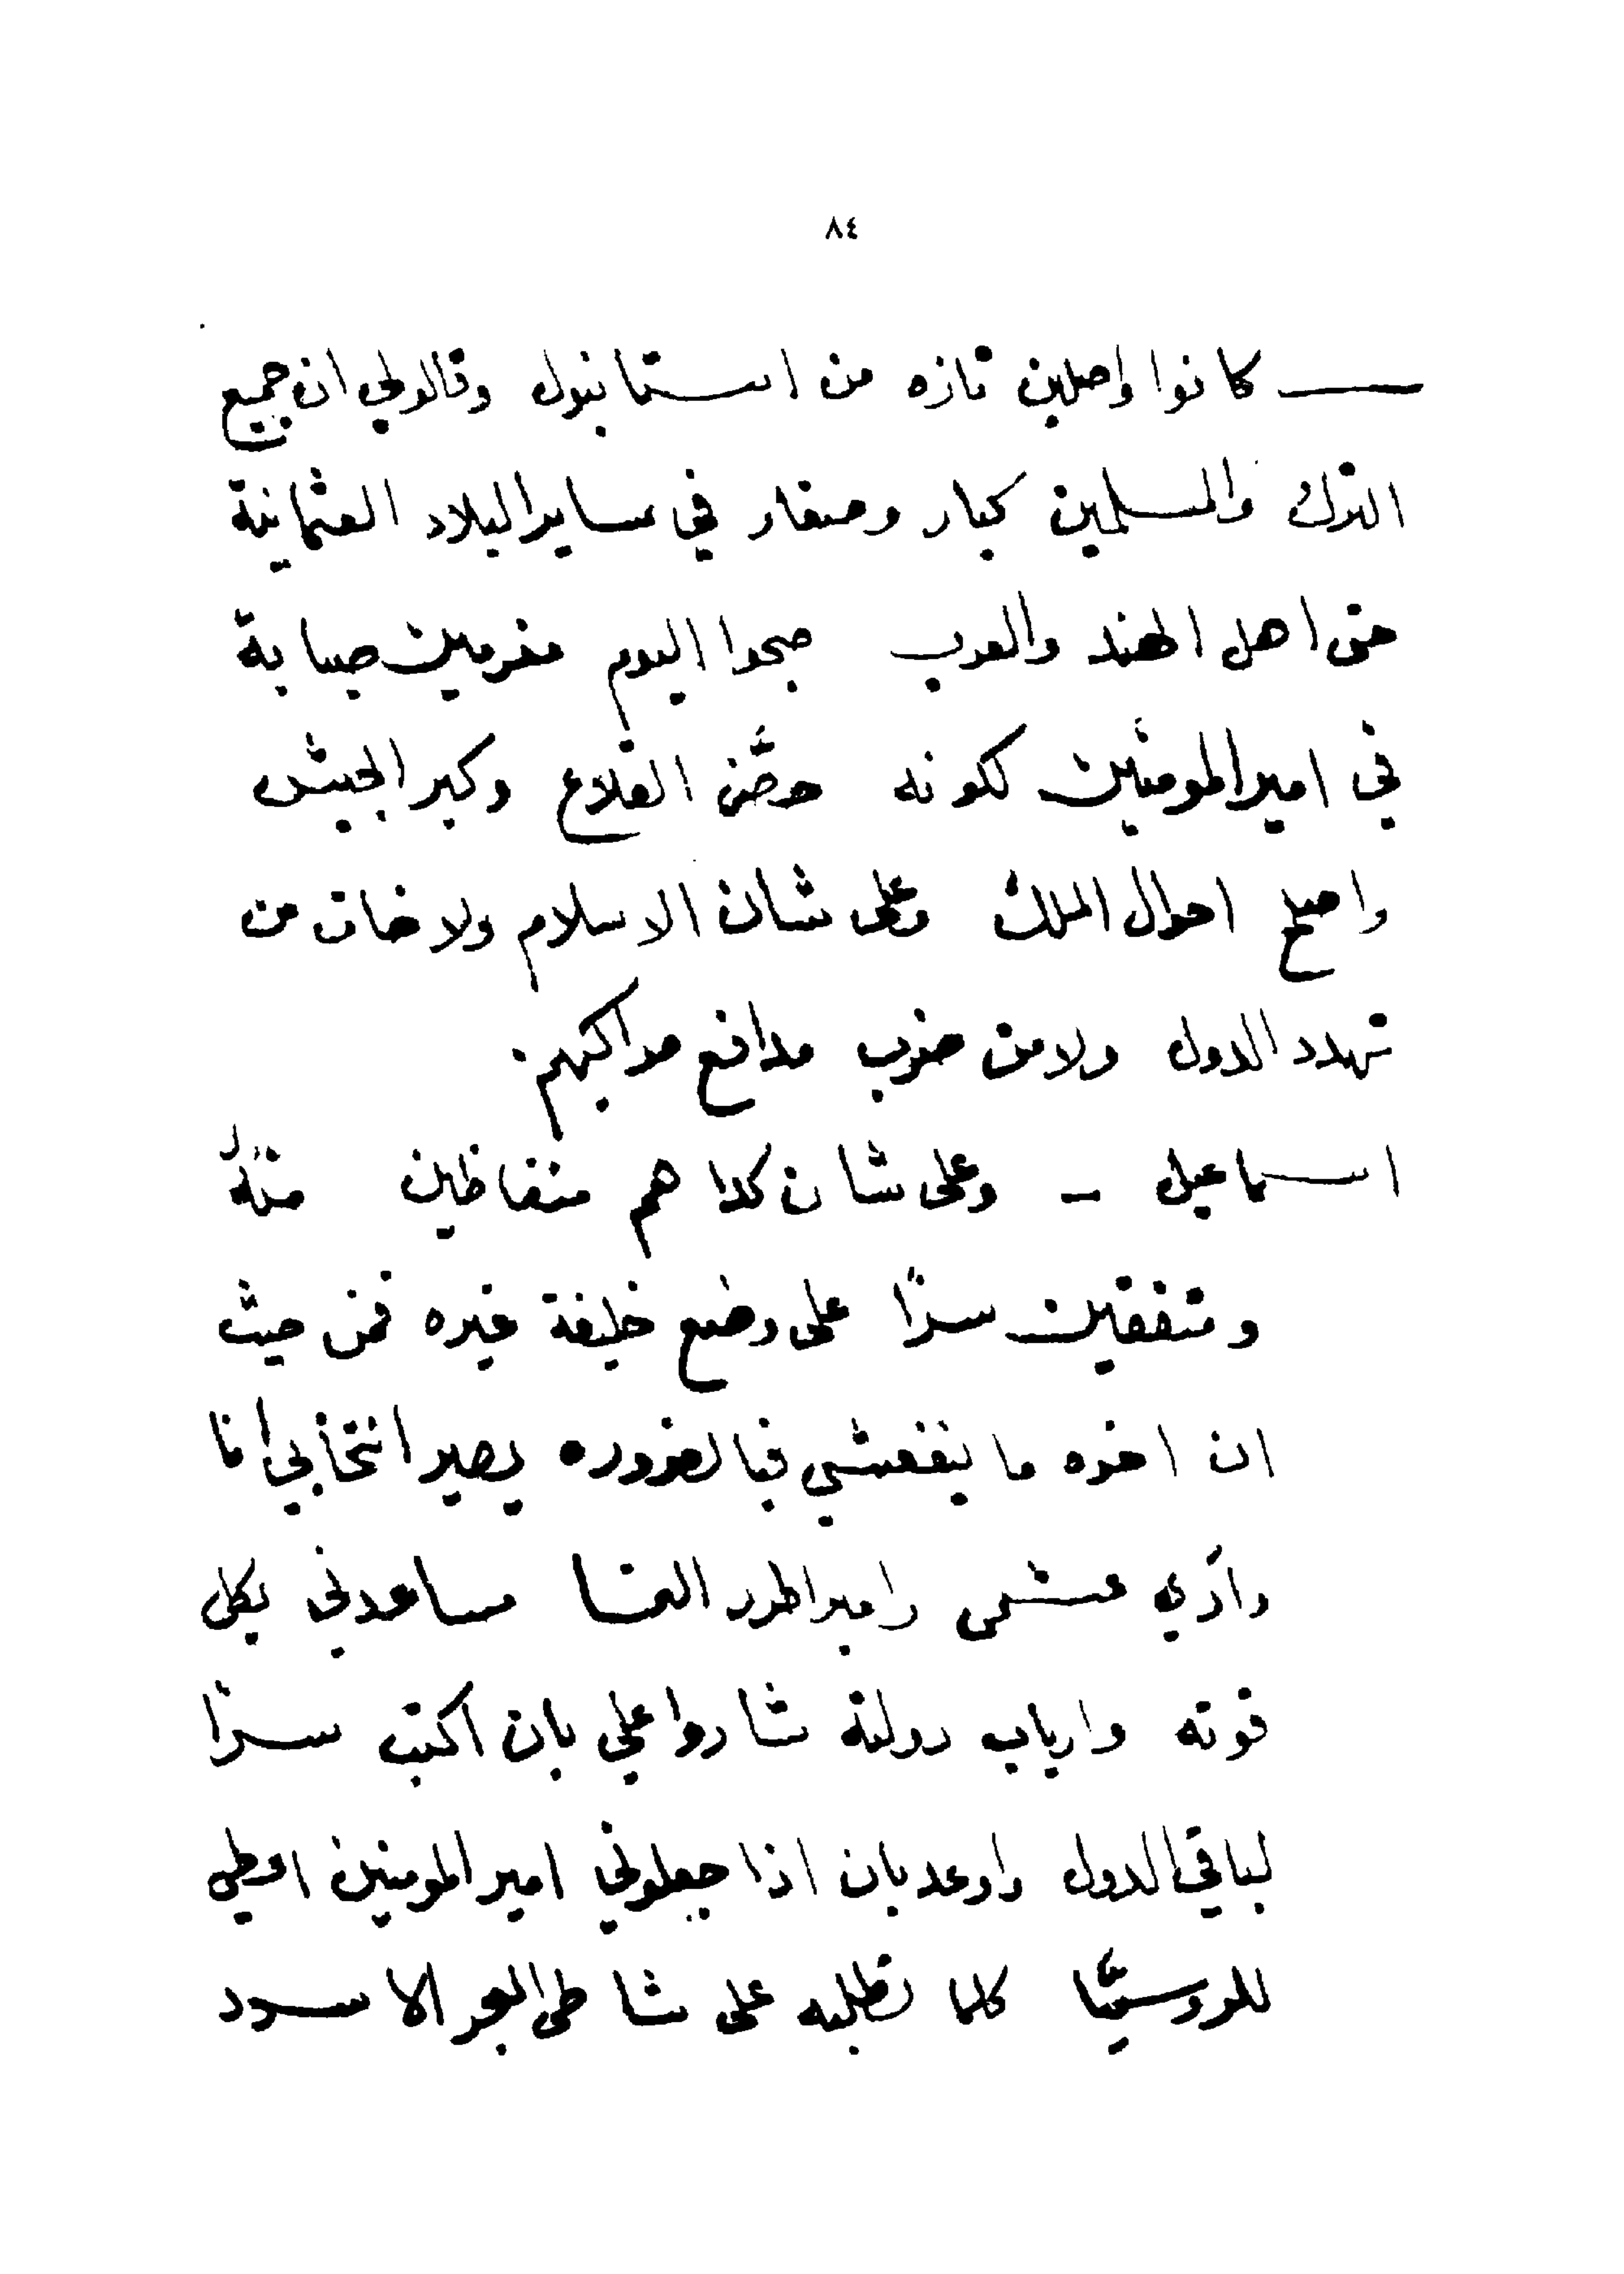 ٨٤
كانوا واصلين تازه من استانبول وقالولي ان جميع
الترك والمسلمين كبار وصغار في ساير البلاد العثمانية
حتى اهل الهند والعرب صبحوا اليوم مغرمين صبابة
في امير المومنين لكونه حصَّن القلاع وكبر الجيش
واصلح احوال الملك وعلى شان الاسلام ولا خاف من
تهدد الدول ولا من ضرب مدافع مراكبهم.
اسماعيل – وعلى شان كدا هم متغاظين منهُ
ومتفقين سرًا على وضع خليفة غيره فمن حيث
ان اخوه ما ينفعشي فبالضروره يصير انتخابي انا
وادي عشمي وامبراطور النمسا مساعدني بكل
قوته وارباب دولته شاروا علي بان اكتب سرًا
لباقي الدول واوعد بان اذا جعلوني امير المومنين اعطي
للروسيّا كلما تطلبه على شاطي البحر الاسود